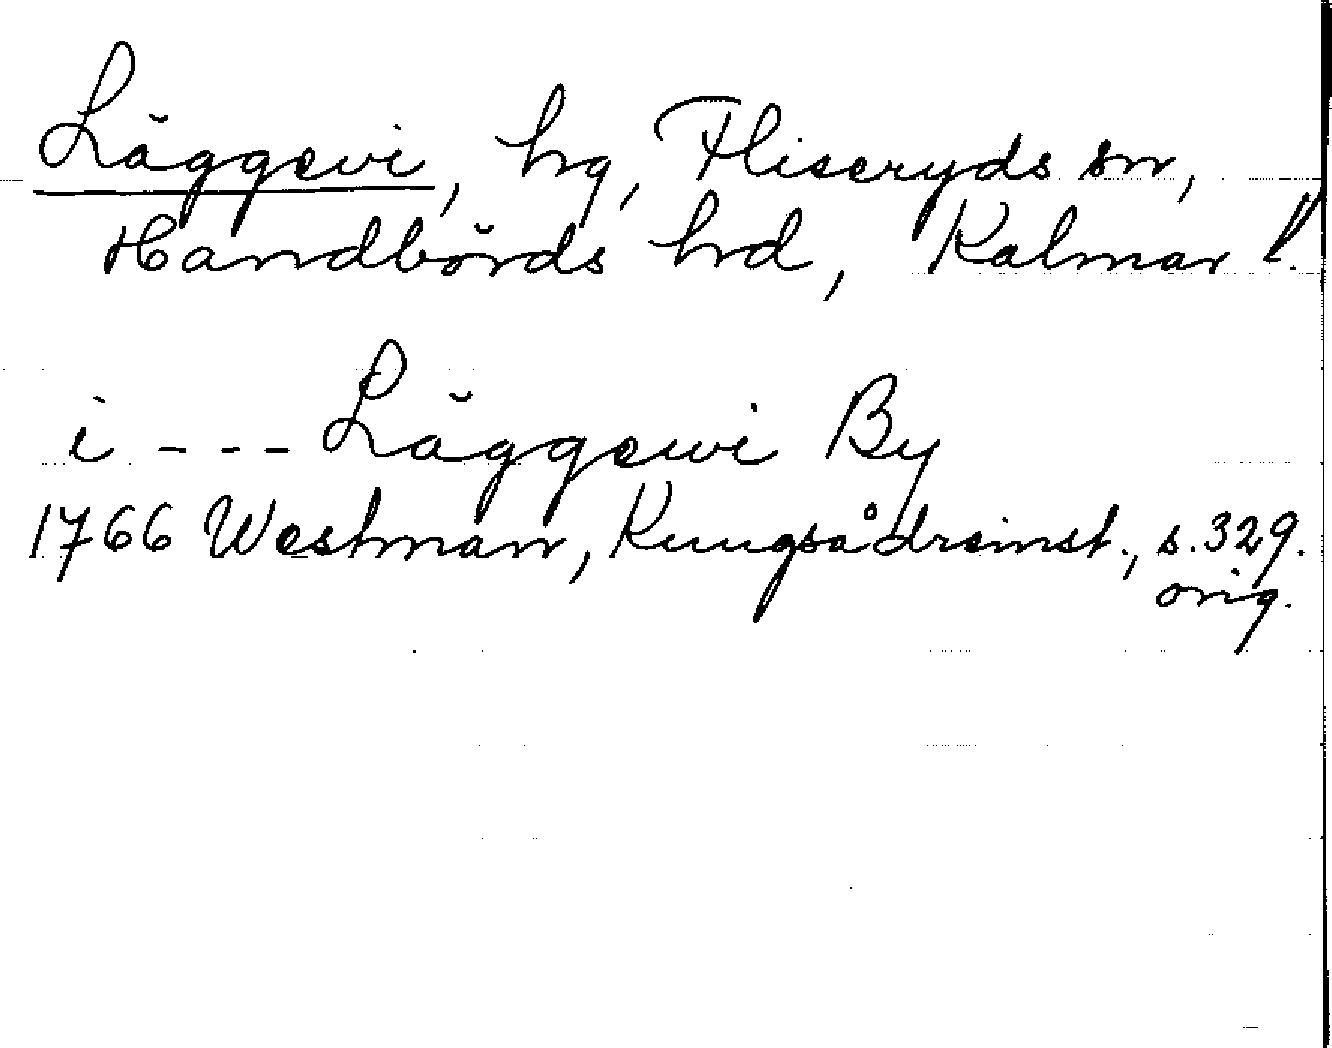 Läggevi, hg, Fliseryds sn,
Handbörds hrd, Kalmar l.
i --- Läggewi By
1766 Westman, Kungsådreinst., s. 329.
orig.